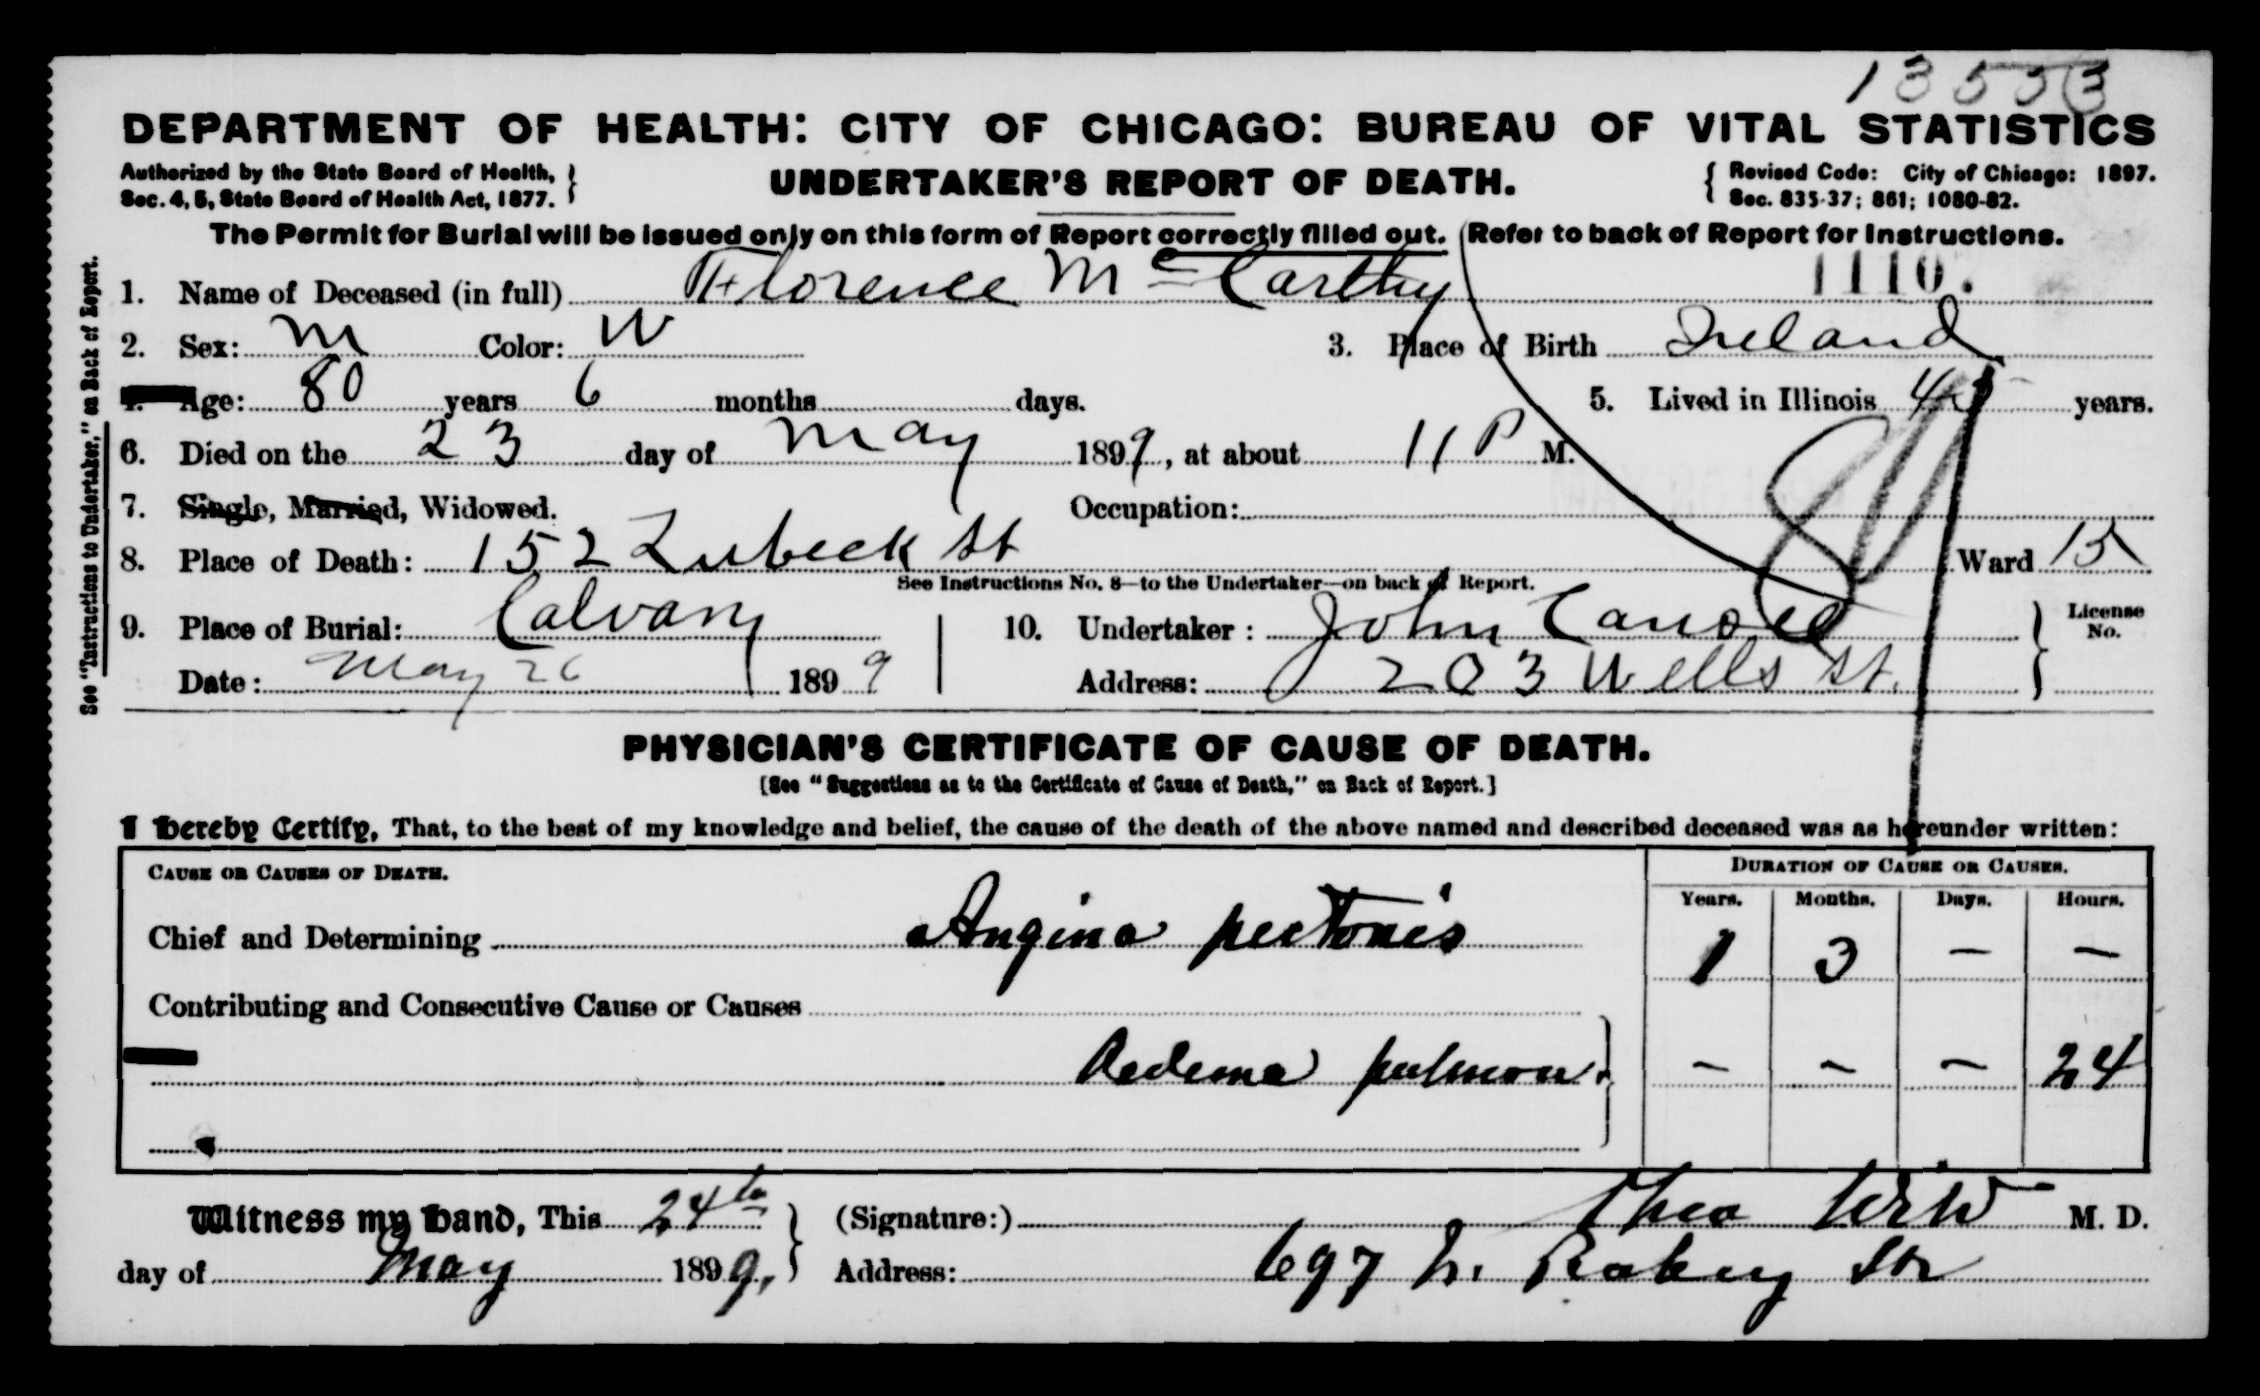 13553
DEPARTMENT OF HEALTH: CITY OF CHICAGO: BUREAU OF VITAL STATISTICS
Authorized by the State Board of Health, Sec. 4, 5, State Board of Health Act, 1877.
UNDERTAKER'S REPORT OF DEATH.
Revised Code: City of Chicago: 1897. Sec. 835-37; 861; 1080-82.
The Permit for Burial will be issued only on this form of Report correctly filled out. Refer to back of Report for Instructions.
See "Instructions to Undertaker," on Back of Report.
1110.
1. Name of Deceased (in full) Florence McCarthy
2. Sex: M Color: W 3. Place of Birth Ireland
4. Age: 80 years 6 months days. 5. Lived in Illinois years.
6. Died on the 23 day of May 1899, at about 11 P M.
7. Single, Married, Widowed. Occupation:
8. Place of Death: 152 Lubeck St Ward 15
See Instructions No. 8—to the Undertaker—on back of Report.
9. Place of Burial: Calvary 10. Undertaker: John License No.
Date: May 26 1899 Address: 203 Wells St.
PHYSICIAN'S CERTIFICATE OF CAUSE OF DEATH.
[See "Suggestions as to the Certificate of Cause of Death," on Back of Report.]
I hereby Certify, That, to the best of my knowledge and belief, the cause of the death of the above named and described deceased was as hereunder written:
CAUSE OR CAUSES OF DEATH. DURATION OF CAUSE OR CAUSES.
Years. Months. Days. Hours.
Chief and Determining Angina pectoris 1 3 – –
Contributing and Consecutive Cause or Causes
Oedema pulmon. – – – 24
Witness my hand, This 24th (Signature:) Theo M. D.
day of May 1899, Address: 697 N. Robey Str